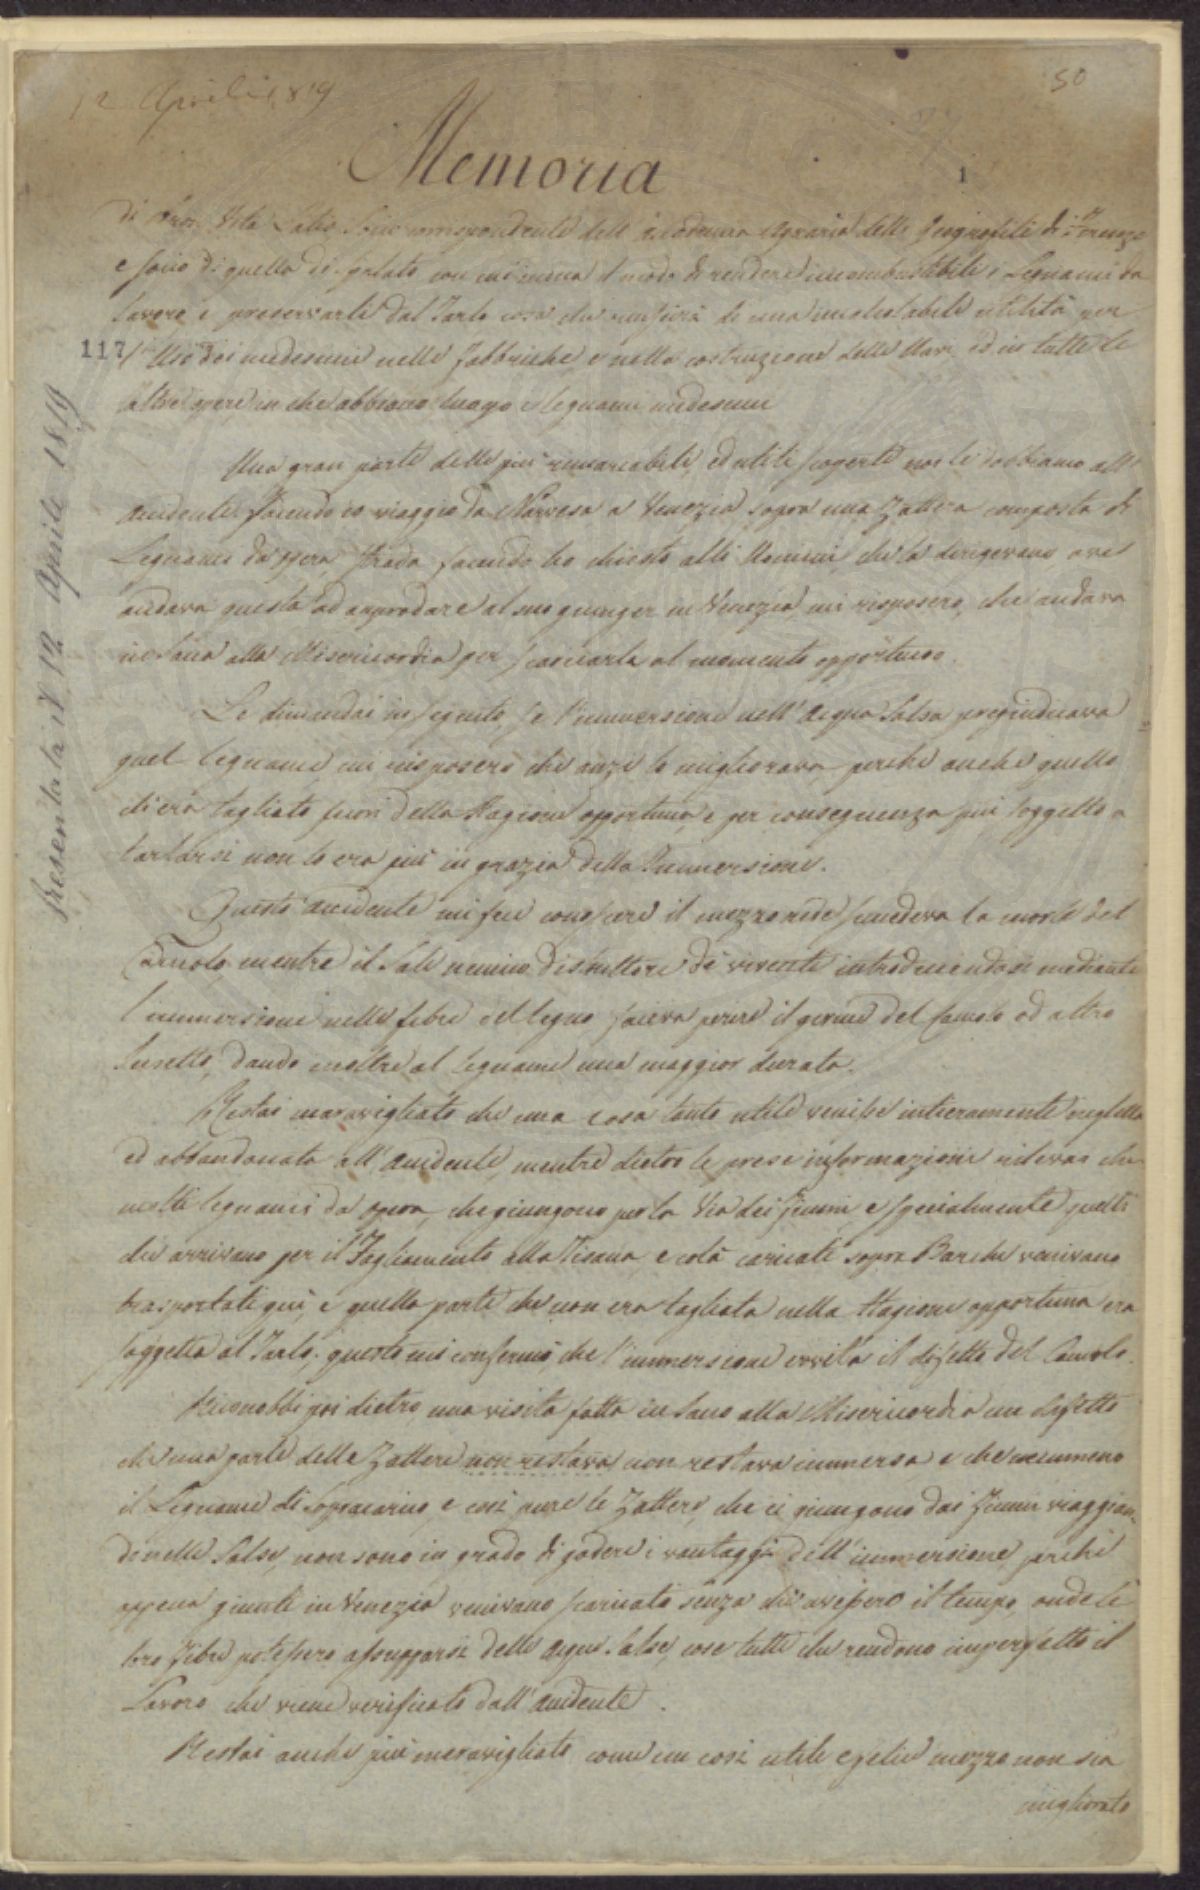 12 Aprile 1819
50
Memoria
1
di Vita Salis, Socio corrispondente dell'Accademia Agraria delle Georgofili di Firenze
e socio di quella di Spalato con cui insinua il modo di rendere incombustibili i Legnami da
lavoro e preservarli dal Tarlo cosa che riuscirà di una incalcolabile utilità per
117
l'uso dei medesimi nelle Fabbriche e nella costruzione delle Navi ed in tutte le
altre opere in che abbiano luogo i legnami medesimi
Presentata il 12 Aprile 1819
Una gran parte delle più rimarcabili, ed utili scoperte noi le dobbiamo all'
accidente. Facendo io viaggio da Narvesa a Venezia sopra una Zattera composta di
Legnami da opera, strada facendo ho chiesto alli Uomini, che la dirigevano, ove
andava questa ad approdare al suo giunger in Venezia, mi risposero, che andava
in Sacca alla Misericordia per scaricarla al momento opportuno.
Le dimandai in seguito, se l'immersione nell'acqua Salsa pregiudicava
quel legname mi risposero che anzi lo migliorava perchè anche quello
ch'era tagliato fuori della Stagione opportuna, e per conseguenza più soggetto a
tarlarsi non lo era più in grazia della Immersione.
Questo accidente mi fece conoscere il mezzo ove succedeva la morte del
Camolo, mentre il Sale nemico distruttore de' viventi introducendosi mediante
l'immersione nelle fibre del legno faceva perire il germe del Camolo od altro
Insetto, dando inoltre al legname una maggior durata.
Restai maravigliato che una cosa tanto utile venisse intieramente negletta
ed abbandonata all'accidente, mentre dietro le prese informazioni rilevai che
molti legnami da opera, che giungono per la Via dei fiumi, e specialmente quelli
che arrivano per il Tagliamento alla Tisana e colà caricati sopra Barche venivano
trasportati qui, e quella parte che non era tagliata nella Stagione opportuna era
soggetta al Tarlo; questo mi confermò, che l'immersione evvita il difetto del Camolo.
Riconobbi poi dietro una visita fatta in Sacca alla Misericordia un difetto
che una parte delle Zattere non restava non restava immersa e che nemmeno
il Legname di Sopracarico, e così pure le Zattere, che ci giungono dai Fiumi viaggian-
do nelle Salse, non sono in grado di godere i vantaggi dell'immersione, perchè
appena giunti in Venezia venivano scaricati senza che avessero il tempo, onde le
loro fibre potessero assupparsi delle acque Salse, cose tutte che rendono imperfetto il
Lavoro che viene verificato dall'accidente.
Restai anche più meravigliato, come un così utile e felice mezzo non sia
migliorato